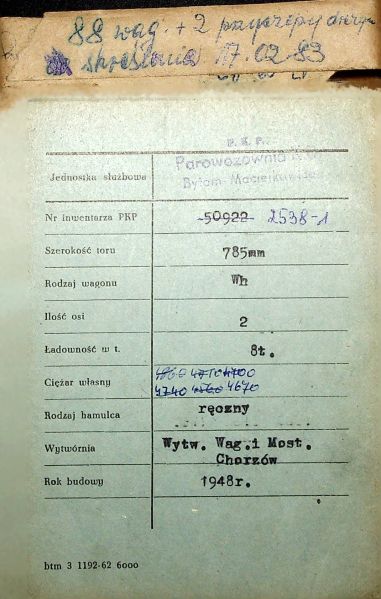 88 wag. + 2 przyczepy
skreślenia 17.02.83
P. K. P.
Parowozownia
Jednostka służbowa Bytom-Maciejkowice
Nr inwentarza PKP 50922 2538-1
Szerokość toru 785mm
Rodzaj wagonu Wh
Ilość osi 2
Ładowność w t. 8t.
4710 4700
Ciężar własny 4740 4670
Rodzaj hamulca ręczny
Wytwórnia Wytw. Wag.i Most.
Chorzów
Rok budowy 1948r.
btm 3 1192-62 6000